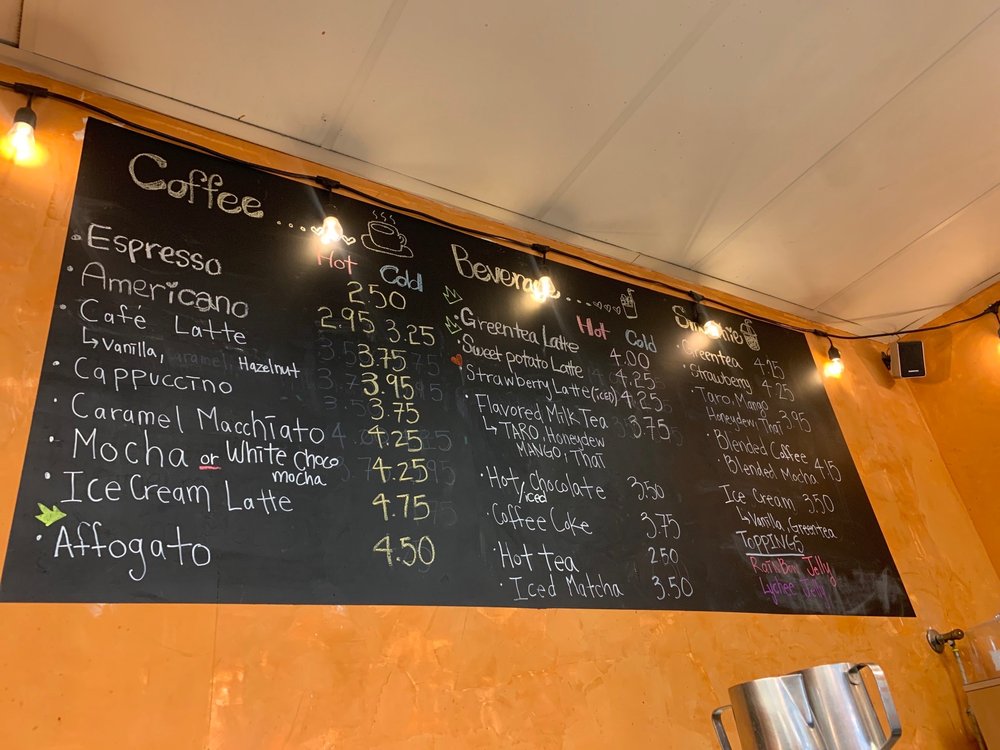 Coffee
Hot Cold
Espresso 2.50
Americano 2.95 3.25
Café Latte 3.75
Vanilla, Hazelnut 3.95
Cappuccino 3.75
Caramel Macchiato 4.25
Mocha or White Choco mocha 4.25
Ice Cream Latte 4.75
Affogato 4.50
Beverage
Hot Cold
Greentea Latte 4.00
Sweet potato Latte 4.25
Strawberry Latte (iced) 4.25
Flavored Milk Tea 3.75
TARO, Honeydew
MANGO, Thai
Hot/iced Chocolate 3.50
Coffee Coke 3.75
Hot tea 2.50
Iced Matcha 3.50
Smoothie
Greentea 4.95
Strawberry 4.25
Taro, Mango
Honeydew, Thai 3.95
Blended Coffee
Blended Mocha 4.15
Ice Cream 3.50
Vanilla, Greentea
TOPPINGS
RainBow Jelly
Lychee Jelly